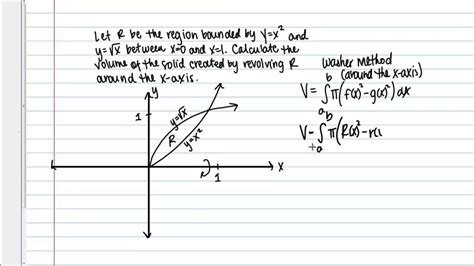 Let R be the region bounded by y=x² and
y=√x between x=0 and x=1. Calculate the
volume of the solid created by revolving R
around the x-axis.
washer method
(around the x-axis)
V = ∫ₐᵇ π(f(x)²-g(x)²)dx
V = ∫ₐᵇ π(R(x)²-r(
y
1
y=√x
R
y=x²
1
x